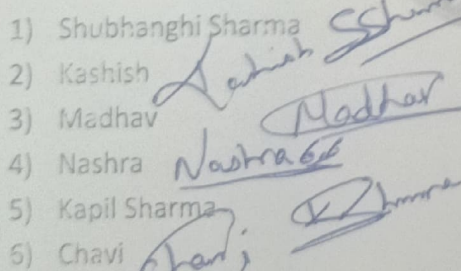 1) Shubhanghi Sharma SSharma
2) Kashish Kashish
3) Madhav Madhav
4) Nashra Nashra 66
5) Kapil Sharma KSharma
6) Chavi Chavi